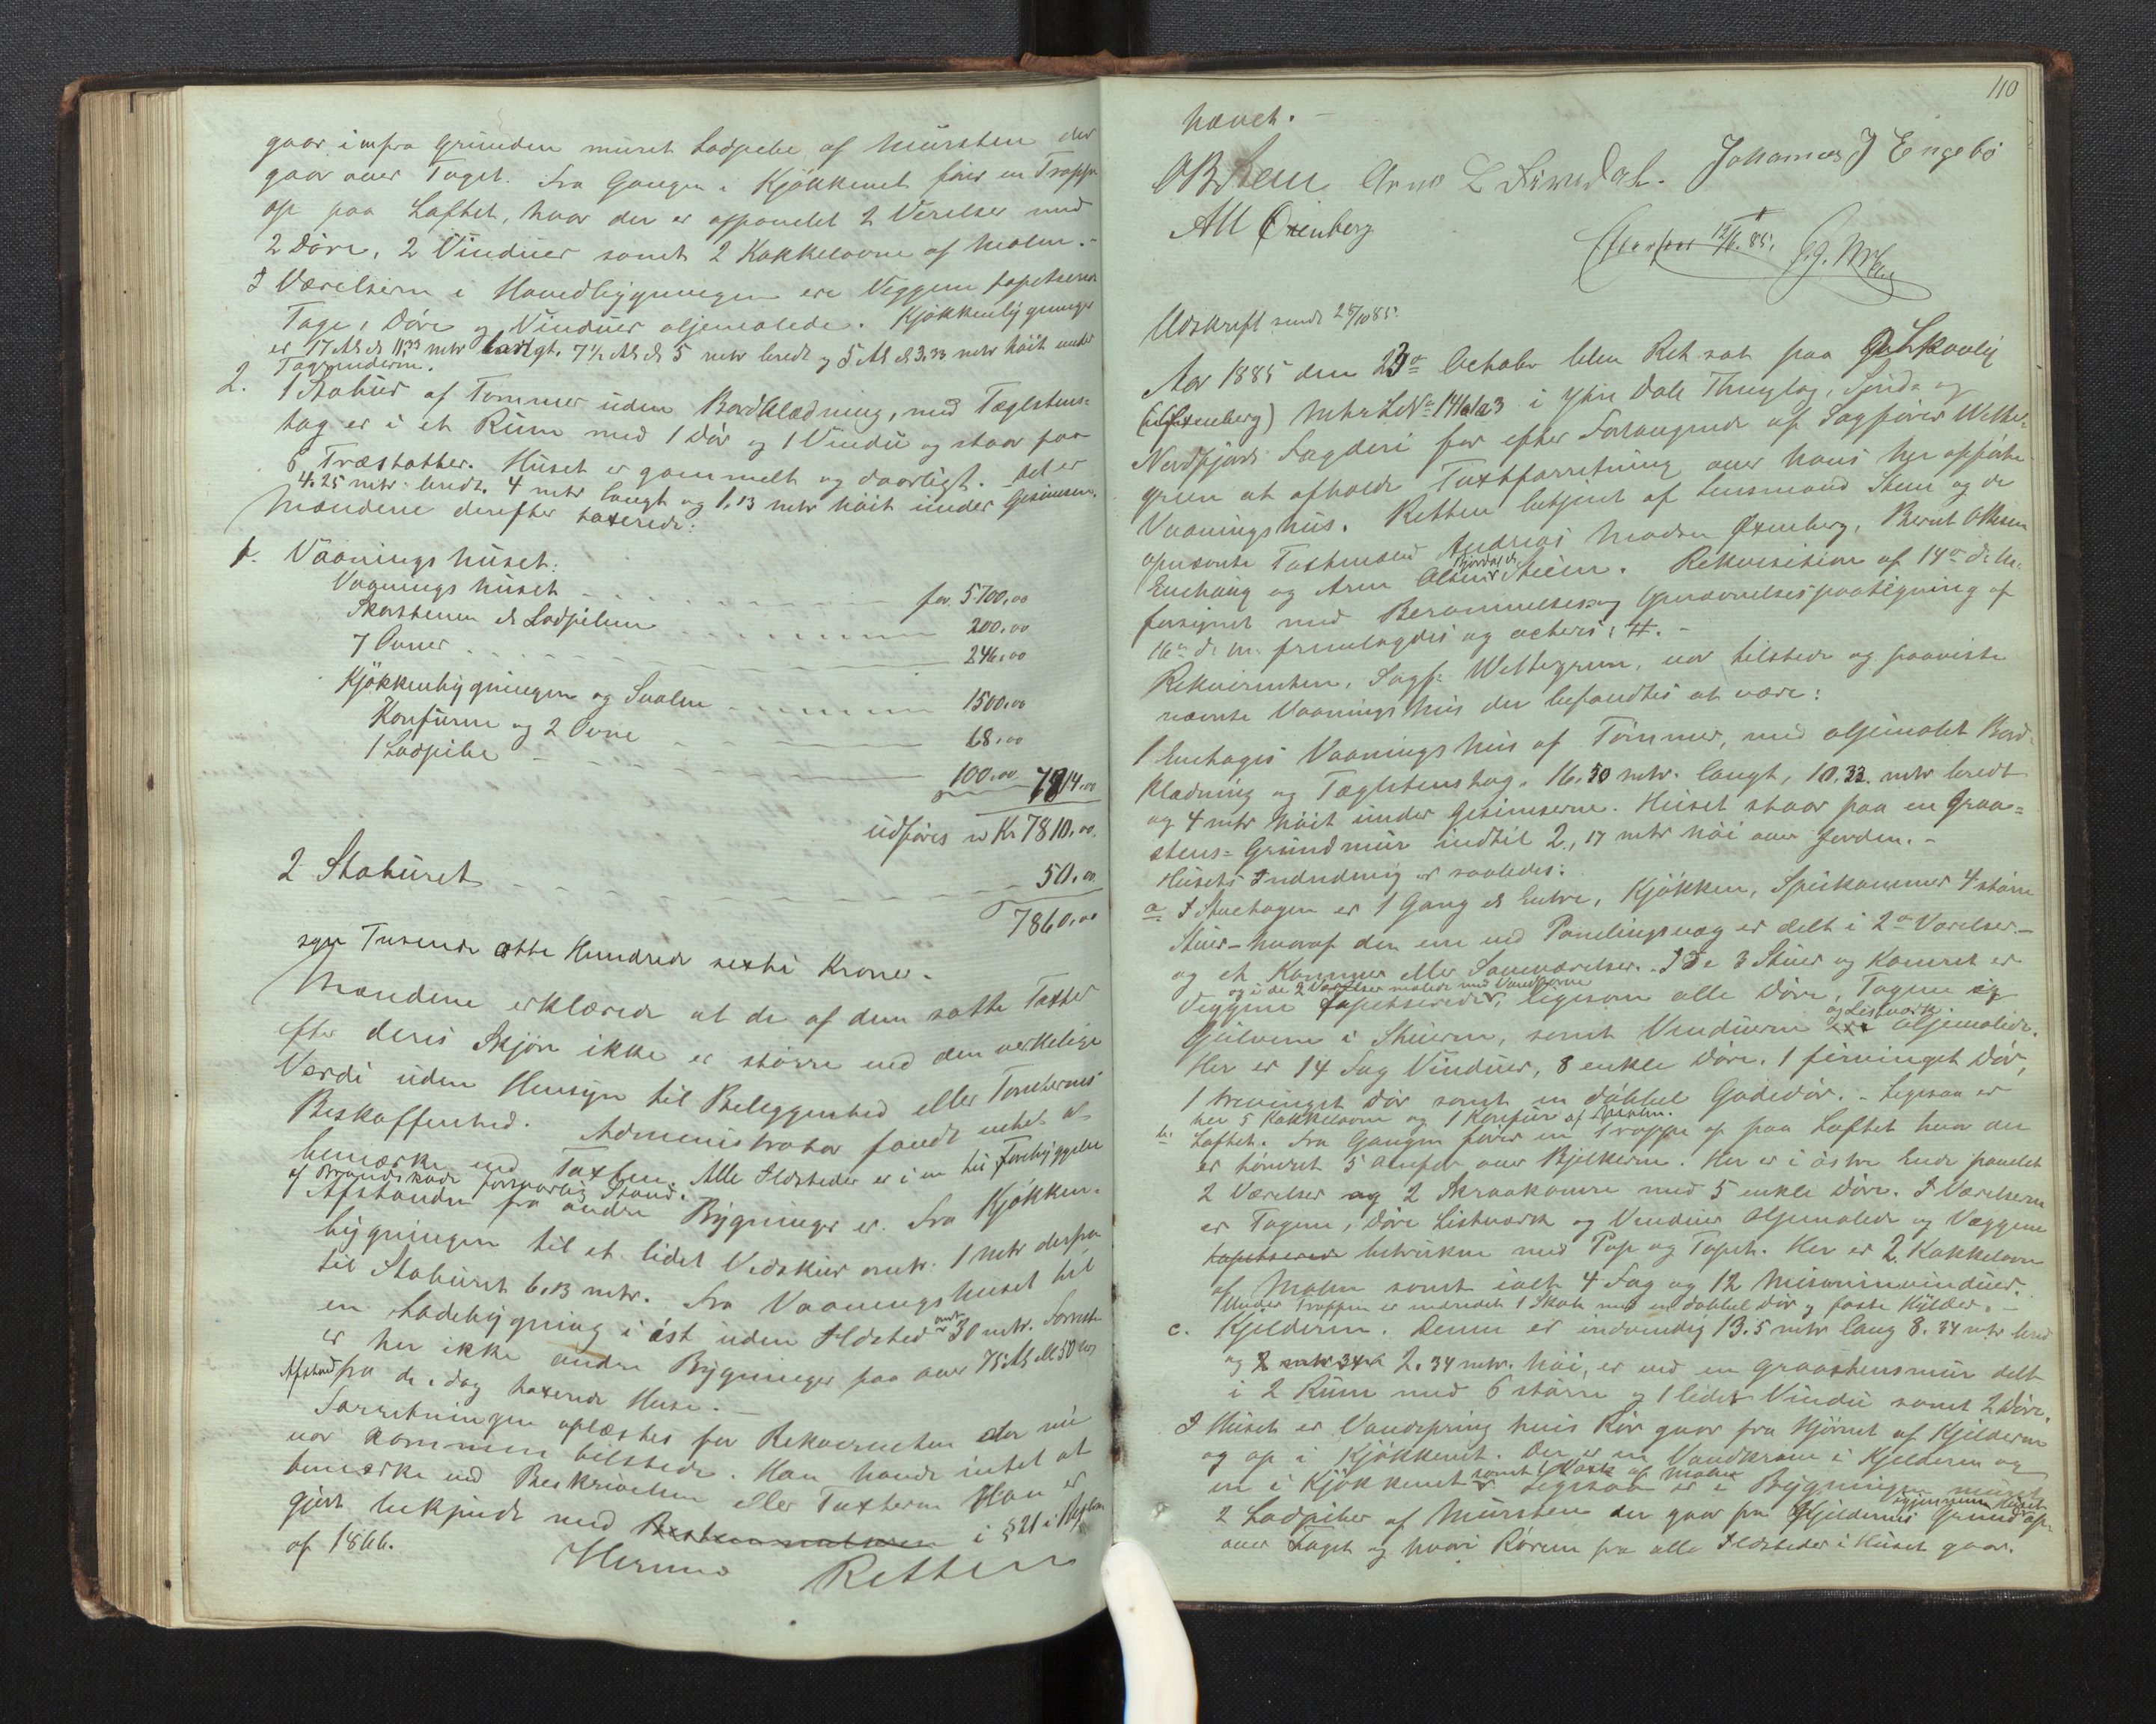 gaar i en fra Grunden muret Ladpibe af Mursten der
gaar over Taget. Fra Gangen i Kjøkkenet fører en Trappe
op paa Loftet, hvor der er afpanelet 2 Værelser med
2 Døre, 2 Vinduer samt 2 Kakkelovne af Malm.-
I Værelserne i Hovedbygningen ere Væggene tapetserede
Tage, Døre og Vinduer oljemalede. Kjøkkenbygningen
er 17 Al. el 11.33 mtr langt, 7½ Al. el 5 mtr bredt og 5 Al. el 3.33 mtr høit under
Tagrenderne.
2. 1 Stabur af Tømmer uden Bordklædning, med Tæglstens=
tag er i et Rum med 1 Dør og 1 Vindu og staar paa
6 Træstabber. Huset er gammelt og daarligt. Det er
4.25 mtr. bredt, 4 mtr langt og 1.13 mtr høit under Gesimsen.
Mændene derefter taxerede:
1. Vaaningshuset:
Vaaningshuset for 5700,00
Skorstenen el Ladpiben 200.00
7 Ovner 246,00
Kjøkkenbygningen og Svalen 1500,00
Komfuren og 2 Ovne 68,00
1 Ladpibe 100.00
7814.00
udføres m Kr 7810,00.
2 Staburet 50,00
7860,00
syv Tusende otte Hundrede sexti Kroner.
Mændene erklærede at de af dem satte Taxter
efter deres Skjøn ikke er større end den verkelige
Værdi uden Hensyn til Beliggenhed eller Tomternes
Beskaffenhed. Administrator fandt intet at
bemærke ved Taxten. Alle Ildsteder er i en til Forebyggelse
af Brandskade forsvarlig Stand.
Afstanden fra andre Bygninger er: fra Kjøkken-
bygningen til et lidet Vedskur omtr. 1 mtr derfra
til Staburet 6,13 mtr. Fra Vaaningshuset til
en Ladebygning i øst uden Ildsted omtr 30 mtr. Forresten
er her ikke andre Bygninger paa over 75 Al. el 50 mtrs
Afstand fra de i dag taxerede Huse.-
Forretningen oplæstes for Rekvirenten der nu
var kommen tilstede. Han havde intet at
bemærke ved Beskrivelsen eller Taxterne Han er
gjort bekjendt med Bestemmelsen i § 21 i
af 1866.
Hermed Retten
110
hævet.-
OB Stein Arne L Førsdal. Johannes J Engebø
AM Øxenberg
Efterseet 12/11 85.
Udskrift sendt 25/10 85.
Aar 1885 den 23de October blev Ret sat paa
(Øxenberg) Mtr. L. No 141a/a3 i Ytre Dale Thinglag, Sønd- og
Nordfjords Fogderi for efter Forlangende af Sagfører Wetter-
green at afholde Taxtforretning over hans her opførte
Vaaningshus. Retten betjent af Lensmand Stein og de
opnævnte Taxtmænd Andreas Madsen Øxenberg, Bernt Olsen
og Arne Olsen Fjordal el Steien. Rekvisition af 14de d. M.
forsynet med Berammelses og Opnævnelsespaategning af
16de d. M. fremlagdes og acteres: H.-
Rekvirenten, Sagf: Wettergreen, var tilstede og paaviste
nævnte Vaaningshus der befandtes at være:
1 Enetages Vaaningshus af Tømmer, med oljemalet Bord-
klædning og Tæglstenstag. 16.50 mtr. langt, 10.33 mtr bredt
og 4 mtr høit under Gesimserne. Huset staar paa en Graa=
stens=Grundmur indtil 2,17 mtr høi over Jorden.-
Husets Indredning er saaledes:
a I Stuetagen er 1 Gang el Entre, Kjøkken, Spiskammer 4 større
Stuer - hvoraf den ene ved Panelingsvæg er delt i 2de Værelser -
og et Kammer eller Soveværelser. I De 3 Stuer og Kamret er
og i de 2 Værelser malede med Vandfarve
Veggene tapetserede, ligesom alle Døre, Tagene og
Gulvene i Stuerne, samt Vinduerne og Listværk oljemalede.
Her er 14 Fag Vinduer, 8 enkle Døre, 1 firvinget Dør,
1 trevinget Dør samt en dobbel Gadedør.- Ligesaa er
her 5 Kakkelovne og 1 Komfur af Malm.
b. Loftet. Fra Gangen fører en Trappe op paa Loftet hvor der
er tømret 5 Omfar over Bjelkerne. Her er i østre Ende panelet
2 Værelser og 2 Skraakamre med 5 enkle Døre. I Værelserne
er Tagene, Døre Listværk og Vinduer Oljemalede og Væggene
tapetserede betrukne med Pap og Tapet. Her er 2 Kakkelovne
af Malm samt ialt 4 Fag og 12 Misoninvinduer.
Under Trappen er indredet 1 Skab med en dobbel Dør og faste Hylder.-
c. Kjelderen. Denne er indvendig 13.5 mtr lang 8.34 mtr bred
og 2 mtr 34 2.34 mtr. høi, er ved en graastensmur delt
i 2 Rum med 6 større og 1 lidet Vindu samt 2 Døre.
I Huset er Vandspring hvis Rør gaar fra Hjørnet af Kjelderen
og op i Kjøkkenet. Der er en Vandkran i Kjelderen og
en i Kjøkkenet samt 1 Vask af Malm Ligesaa er i Bygningen muret
2 Ladpiber af Mursten der gaar fra Kjelderens Grund igjennem Huset op
over Taget og hvori Rørene fra alle Ildsteder i Huset gaar.